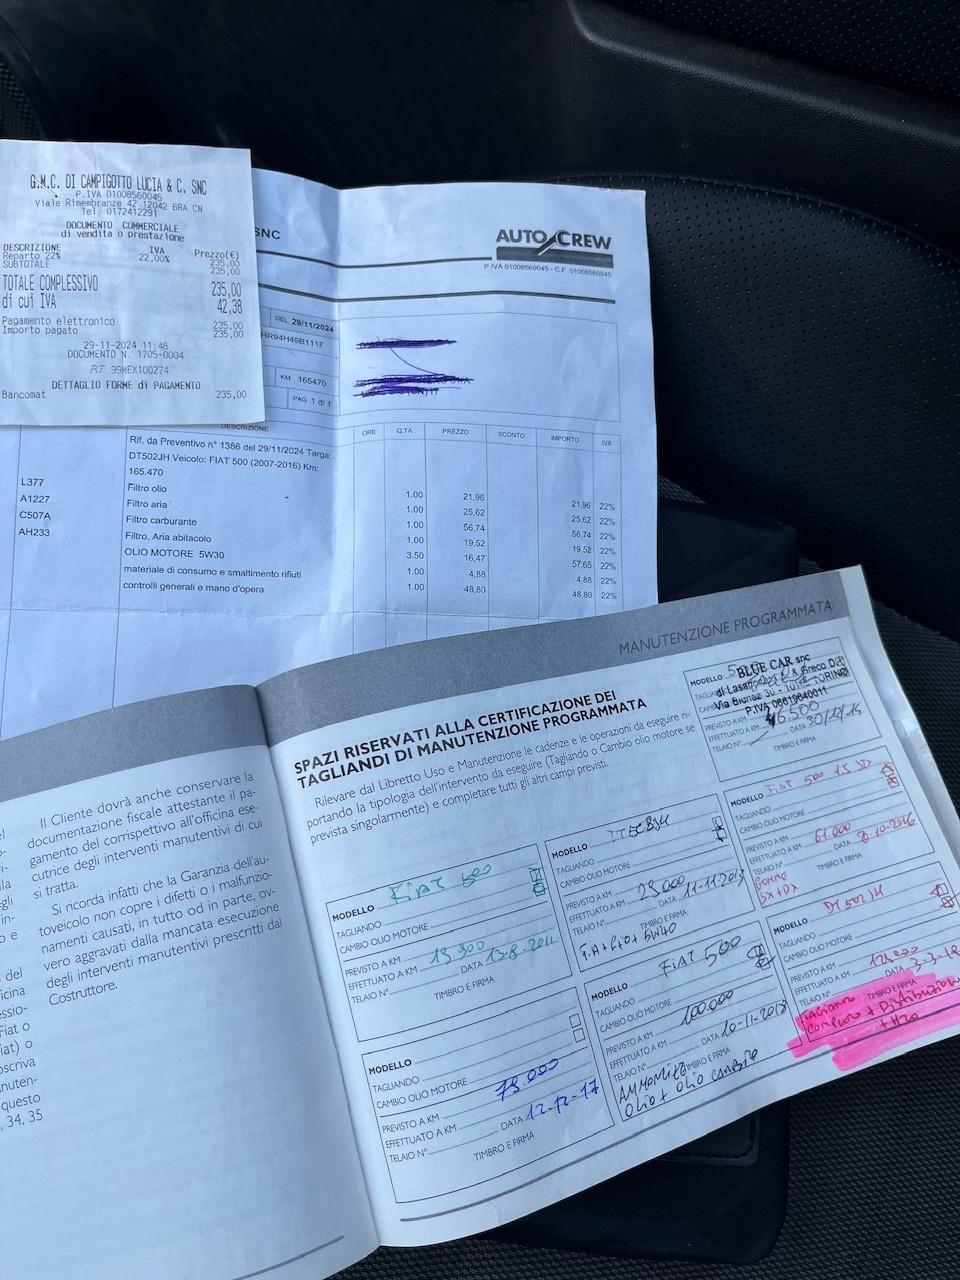 G.M.C. DI CAMPIGOTTO LUCIA & C. SNC
P.IVA 01008560045
Viale Rimembranze 42 12042 BRA CN
Tel. 0172412291
DOCUMENTO COMMERCIALE
di vendita o prestazione
DESCRIZIONE IVA Prezzo(€)
Reparto 22% 22,00% 235,00
SUBTOTALE 235,00
TOTALE COMPLESSIVO 235,00
di cui IVA 42,38
Pagamento elettronico 235,00
Importo pagato 235,00
29-11-2024 11:48
DOCUMENTO N. 1705-0004
RT 99MEX100274
DETTAGLIO FORME di PAGAMENTO
Bancomat 235,00
SNC
AUTO CREW
P.IVA 01008560045 - C.F. 01008560045
DEL 29/11/2024
HR94H49B111F
KM 165470
PAG 1 di 1
DESCRIZIONE ORE Q.TA PREZZO SCONTO IMPORTO IVA
Rif. da Preventivo n° 1386 del 29/11/2024 Targa:
DT502JH Veicolo: FIAT 500 (2007-2016) Km:
165.470
L377 Filtro olio 1.00 21,96 21,96 22%
A1227 Filtro aria 1.00 25,62 25,62 22%
C507A Filtro carburante 1.00 56,74 56,74 22%
AH233 Filtro, Aria abitacolo 1.00 19,52 19,52 22%
OLIO MOTORE 5W30 3.50 16,47 57,65 22%
materiale di consumo e smaltimento rifiuti 1.00 4,88 4,88 22%
controlli generali e mano d'opera 1.00 48,80 48,80 22%
Il Cliente dovrà anche conservare la
documentazione fiscale attestante il pa-
gamento del corrispettivo all'officina ese-
cutrice degli interventi manutentivi di cui
si tratta.
Si ricorda infatti che la Garanzia dell'au-
toveicolo non copre i difetti o i malfunzio-
namenti causati, in tutto od in parte, ov-
vero aggravati dalla mancata esecuzione
degli interventi manutentivi prescritti dal
Costruttore.
, 34, 35
MANUTENZIONE PROGRAMMATA
SPAZI RISERVATI ALLA CERTIFICAZIONE DEI
TAGLIANDI DI MANUTENZIONE PROGRAMMATA
Rilevare dal Libretto Uso e Manutenzione le cadenze e le operazioni da eseguire ri-
portando la tipologia dell'intervento da eseguire (Tagliando o Cambio olio motore se
prevista singolarmente) e completare tutti gli altri campi previsti.
MODELLO FIAT 500
TAGLIANDO
CAMBIO OLIO MOTORE
PREVISTO A KM
EFFETTUATO A KM DATA
TELAIO N°
TIMBRO E FIRMA
MODELLO
TAGLIANDO
CAMBIO OLIO MOTORE
PREVISTO A KM 78.000
EFFETTUATO A KM DATA 12-12-17
TELAIO N°
TIMBRO E FIRMA
MODELLO
TAGLIANDO
CAMBIO OLIO MOTORE
PREVISTO A KM
EFFETTUATO A KM DATA
TELAIO N°
TIMBRO E FIRMA
MODELLO FIAT 500
TAGLIANDO
CAMBIO OLIO MOTORE
PREVISTO A KM 100.000
EFFETTUATO A KM DATA
TELAIO N°
TIMBRO E FIRMA
OLIO + OLIO CAMBIO
MODELLO
BLUE CAR snc
P.IVA
PREVISTO A KM
EFFETTUATO A KM DATA 30/10/14
TELAIO N°
TIMBRO E FIRMA
MODELLO FIAT 500
TAGLIANDO
CAMBIO OLIO MOTORE
PREVISTO A KM 61.000
EFFETTUATO A KM DATA
TELAIO N°
TIMBRO E FIRMA
GOMME
SX + DX
MODELLO DT 502 JH
TAGLIANDO
CAMBIO OLIO MOTORE
PREVISTO A KM
EFFETTUATO A KM DATA
TELAIO N°
TIMBRO E FIRMA
TAGLIANDO
COMPLETO + DISTRIBUZIONE
+ H2O